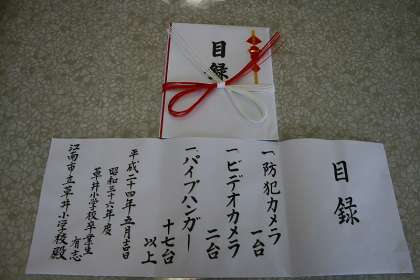 目録
目録
一 防犯カメラ
一台
一 ビデオカメラ
二台
一 パイプハンガー
十七台
以上
平成二十四年五月吉日
昭和三十六年度
草井小学校卒業生
有志
江南市立草井小学校殿